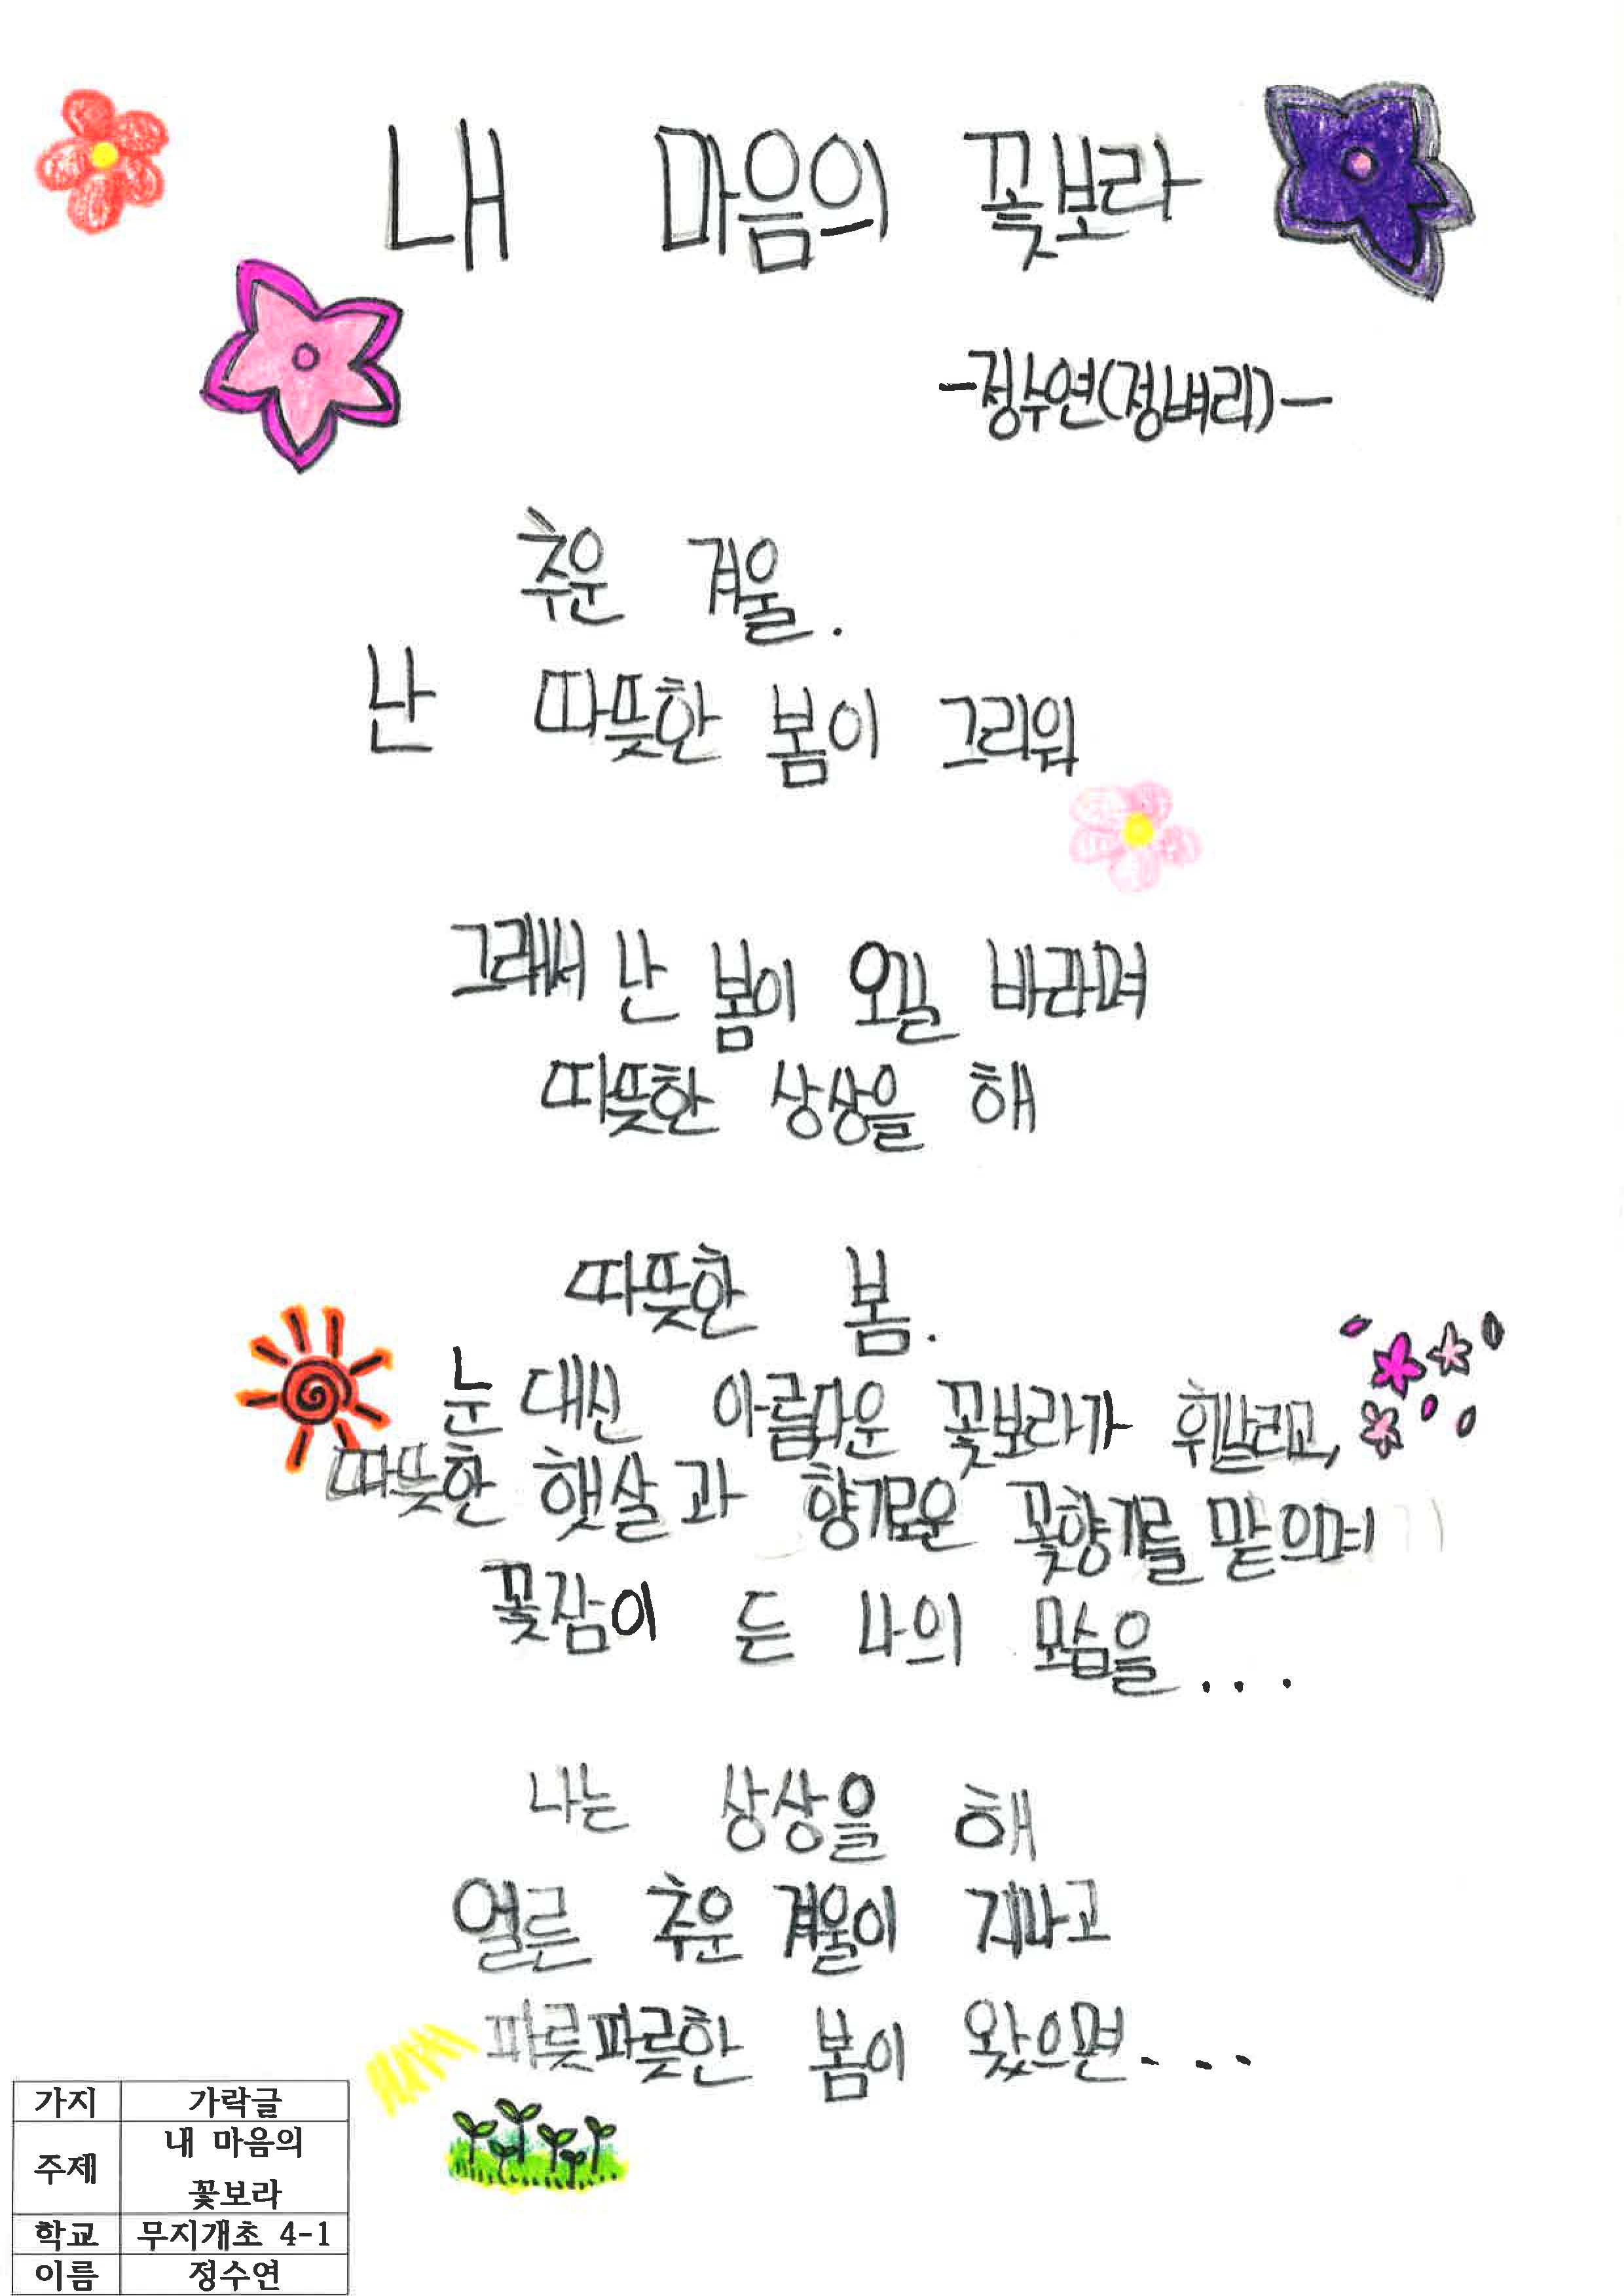 내 마음의 꽃보라
-정수연(정벼리)-
추운 겨울.
난 따뜻한 봄이 그리워
그래서 난 봄이 오길 바라며
따뜻한 상상을 해
따뜻한 봄.
눈 대신 아름다운 꽃보라가 휘날리고,
따뜻한 햇살과 향기로운 꽃향기를 맡으며
꽃잠이 든 나의 모습을...
나는 상상을 해
얼른 추운 겨울이 지나고
파릇파릇한 봄이 왔으면...
가지 가락글
주제 내 마음의
꽃보라
학교 무지개초 4-1
이름 정수연